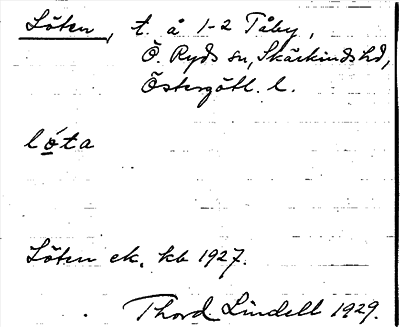 Löten, t. å 1-2 Tåby,
Ö. Ryds sn, Skärkinds hd,
Östergötl. l.
lóta
Löten ek. kb 1927.
Thord Lindell 1929.